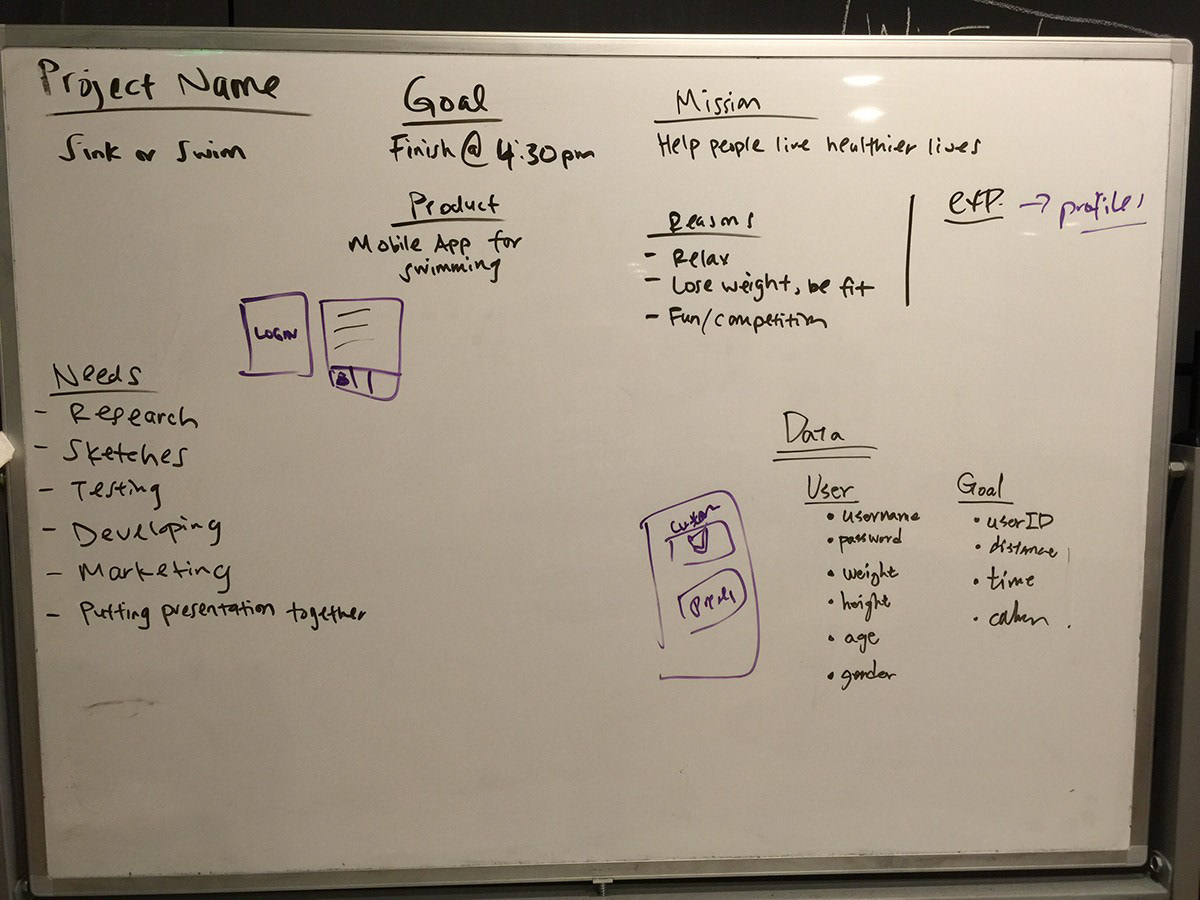 Project Name
Sink or Swim
Goal
Finish @ 4:30pm
Mission
Help people live healthier lives
Product
Mobile App for
swimming
Reasons
- Relax
- Lose weight, be fit
- Fun/competition
exp. → profiles
LOGIN
Needs
- Research
- Sketches
- Testing
- Developing
- Marketing
- Putting presentation together
Data
User
• username
• password
• weight
• height
• age
• gender
Goal
• userID
• distance
• time
custom